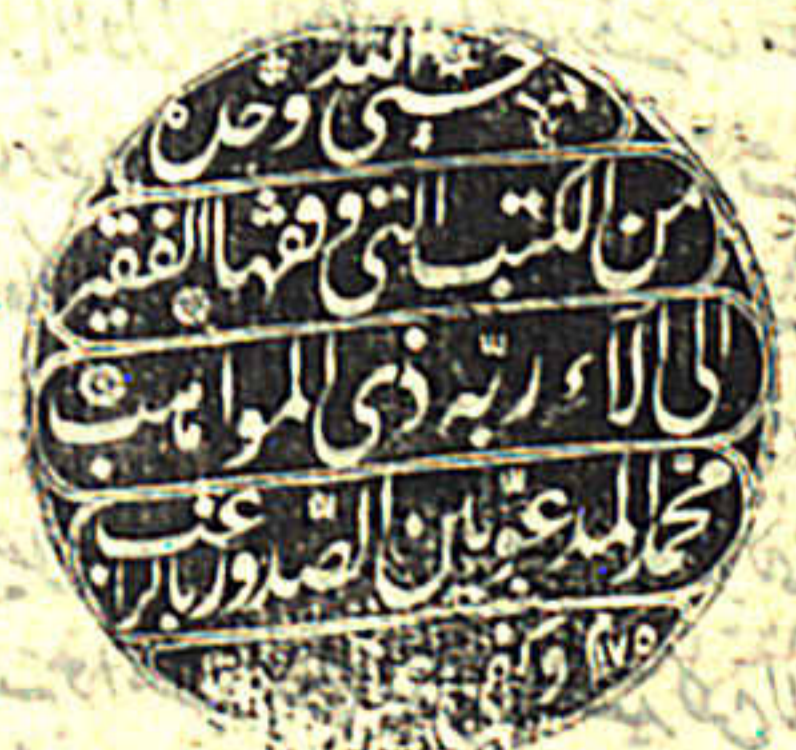 حسبي الله وحده
من الكتب التي وقفها الفقير
الى آلاء ربّه ذي المواهب
محمد المدعوّ بين الصّدور بالراغب
وكفى